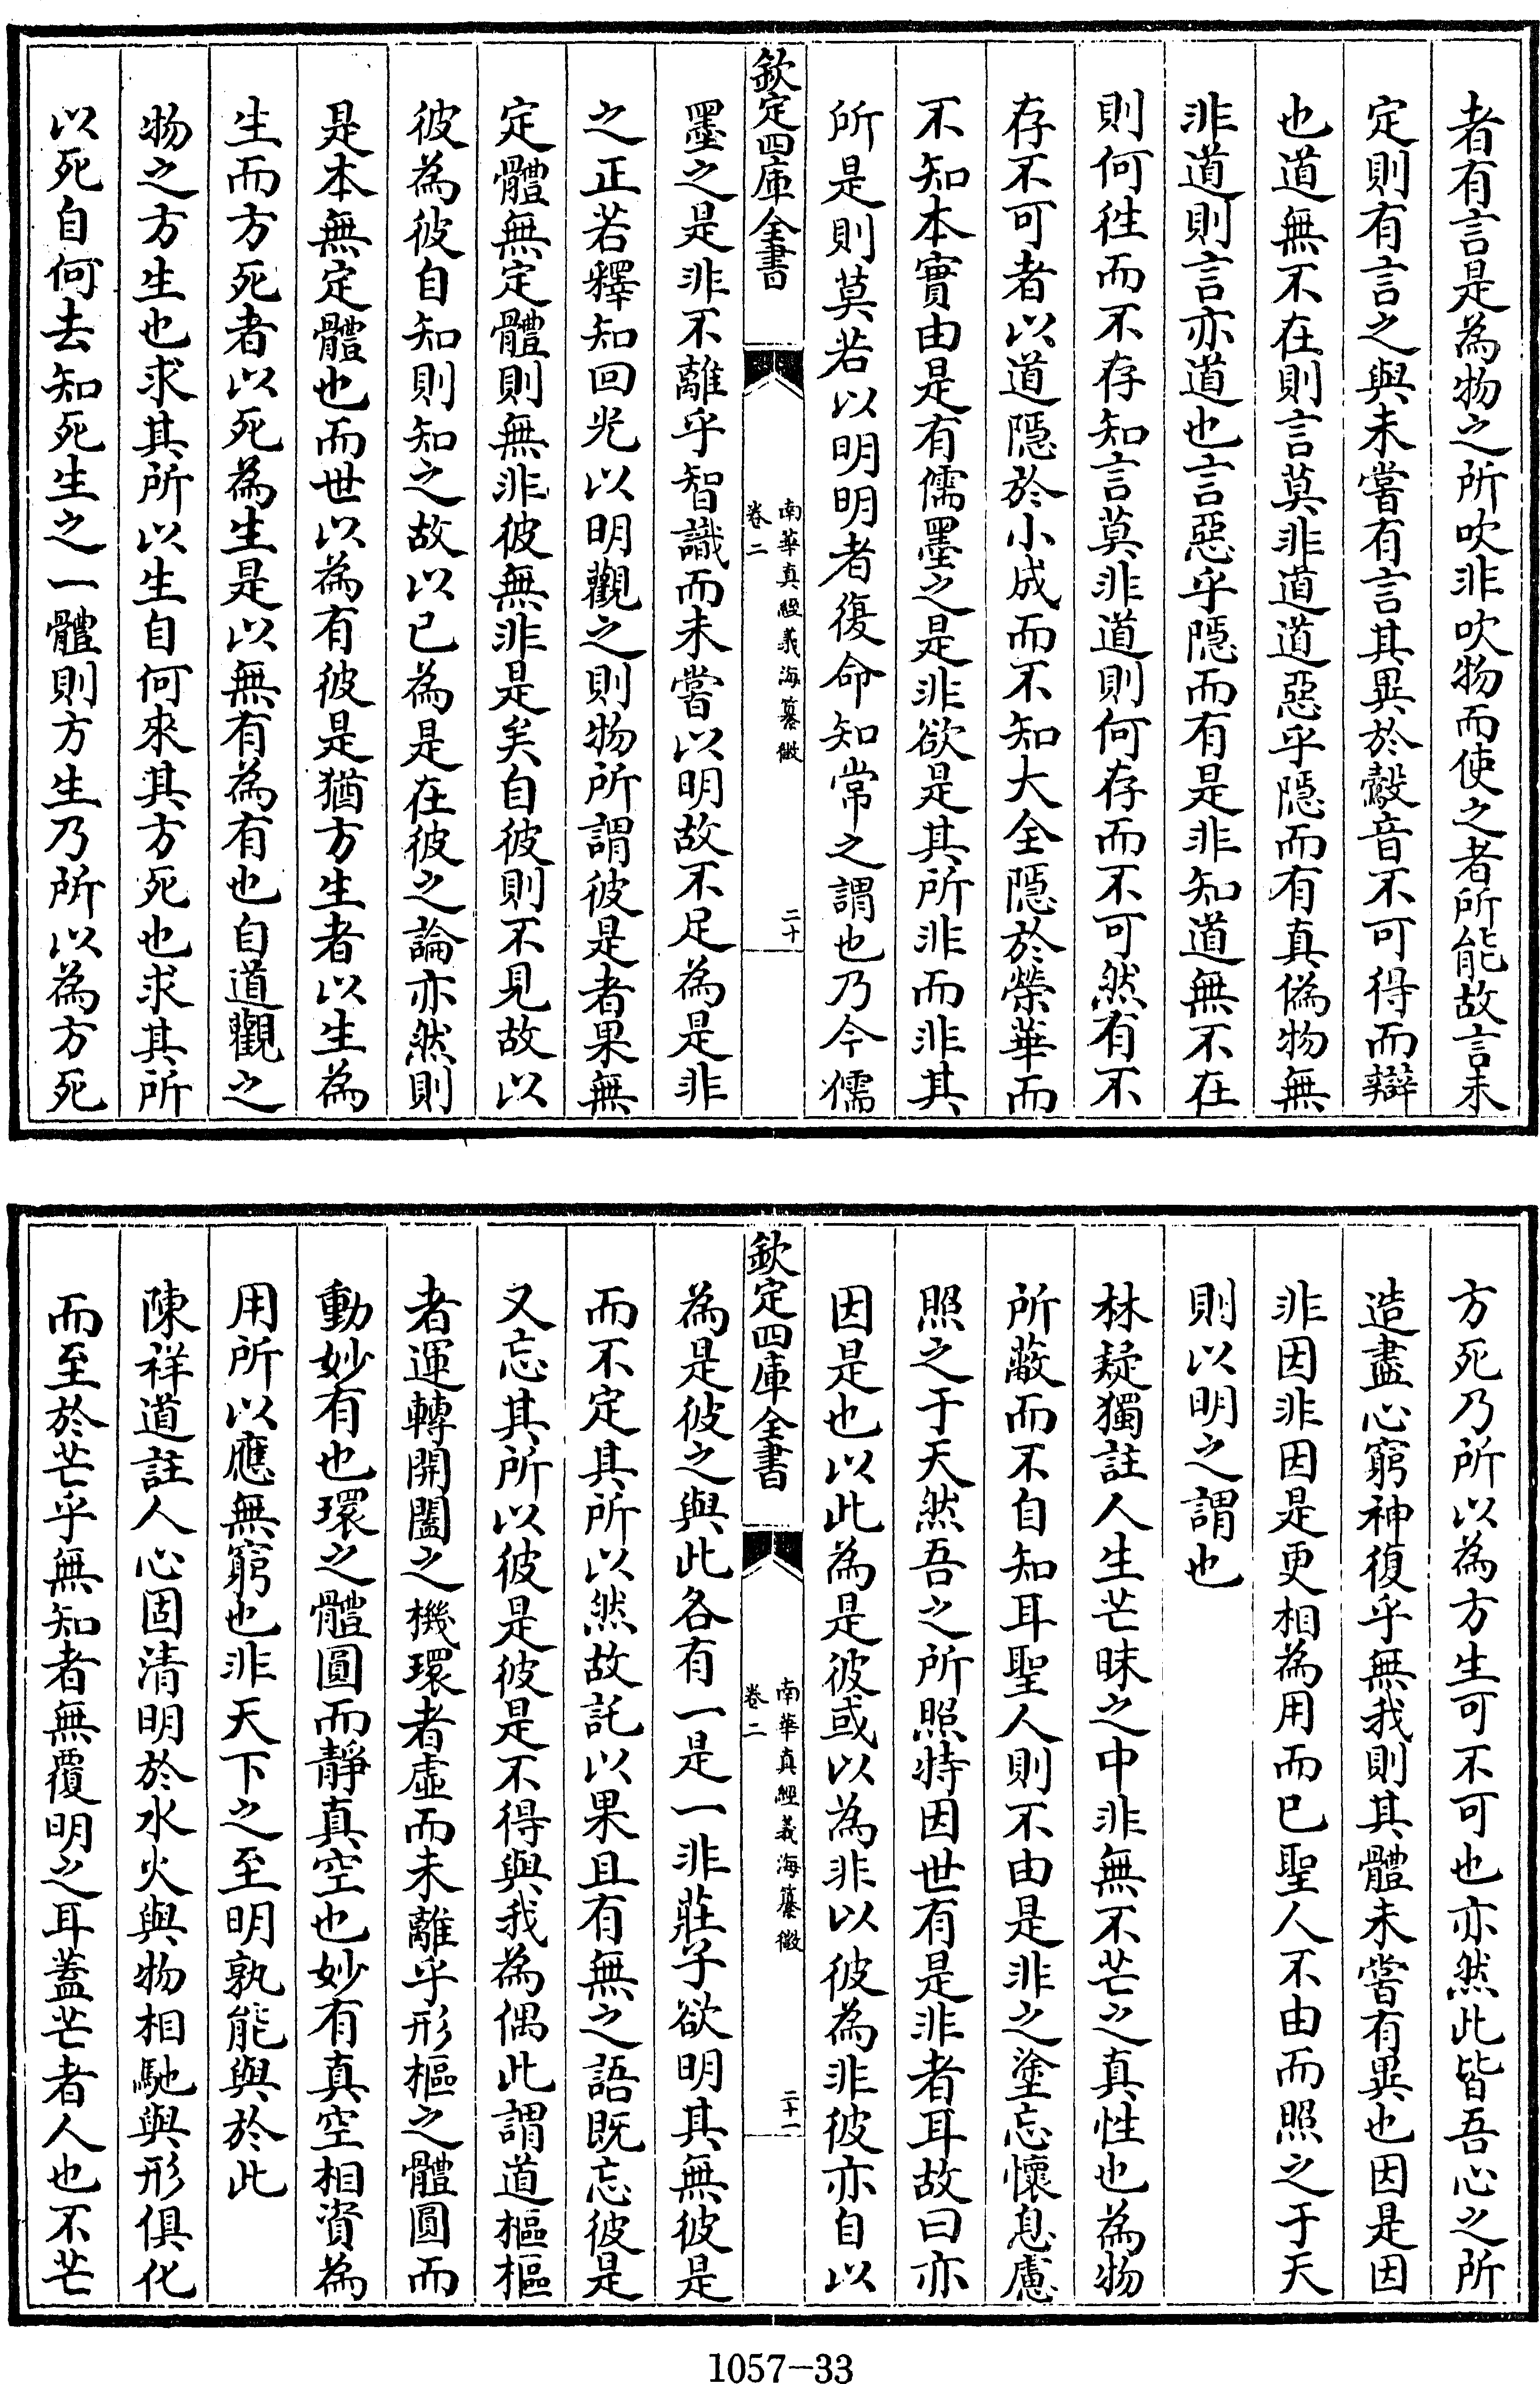 者有言是為物之所吹非吹物而使之者所能故言未
定則有言之與未嘗有言其異於鷇音不可得而辯
也道無不在則言莫非道道惡乎隠而有真偽物無
非道則言亦道也言惡乎隠而有是非知道無不在
則何徃而不存知言莫非道則何存而不可然有不
存不可者以道隠於小成而不知大全隠於榮華而
不知本實由是有儒墨之是非欲是其所非而非其
所是則莫若以明明者復命知常之謂也乃今儒
欽定四庫全書
南華真經義海纂微
卷二
二十
墨之是非不離乎智識而未嘗以明故不足為是非
之正若釋知回光以明觀之則物所謂彼是者果無
定體無定體則無非彼無非是矣自彼則不見故以
彼為彼自知則知之故以已為是在彼之論亦然則
是本無定體也而世以為有彼是猶方生者以生為
生而方死者以死為生是以無有為有也自道觀之
物之方生也求其所以生自何來其方死也求其所
以死自何去知死生之一體則方生乃所以為方死
方死乃所以為方生可不可也亦然此皆吾心之所
造盡心窮神復乎無我則其體未嘗有異也因是因
非因非因是更相為用而已聖人不由而照之于天
則以明之謂也
林疑獨註人生芒昧之中非無不芒之真性也為物
所蔽而不自知耳聖人則不由是非之塗忘懷息慮
照之于天然吾之所照特因世有是非者耳故曰亦
因是也以此為是彼或以為非以彼為非彼亦自以
欽定四庫全書
南華真經義海纂微
卷二
二十一
為是彼之與此各有一是一非莊子欲明其無彼是
而不定其所以然故託以果且有無之語既忘彼是
又忘其所以彼是彼是不得與我為偶此謂道樞樞
者運轉開闔之機環者虛而未離乎形樞之體圓而
動妙有也環之體圓而靜真空也妙有真空相資為
用所以應無窮也非天下之至明孰能與於此
陳祥道註人心固清明於水火與物相馳與形俱化
而至於芒乎無知者無覆明之耳蓋芒者人也不芒
1057-33